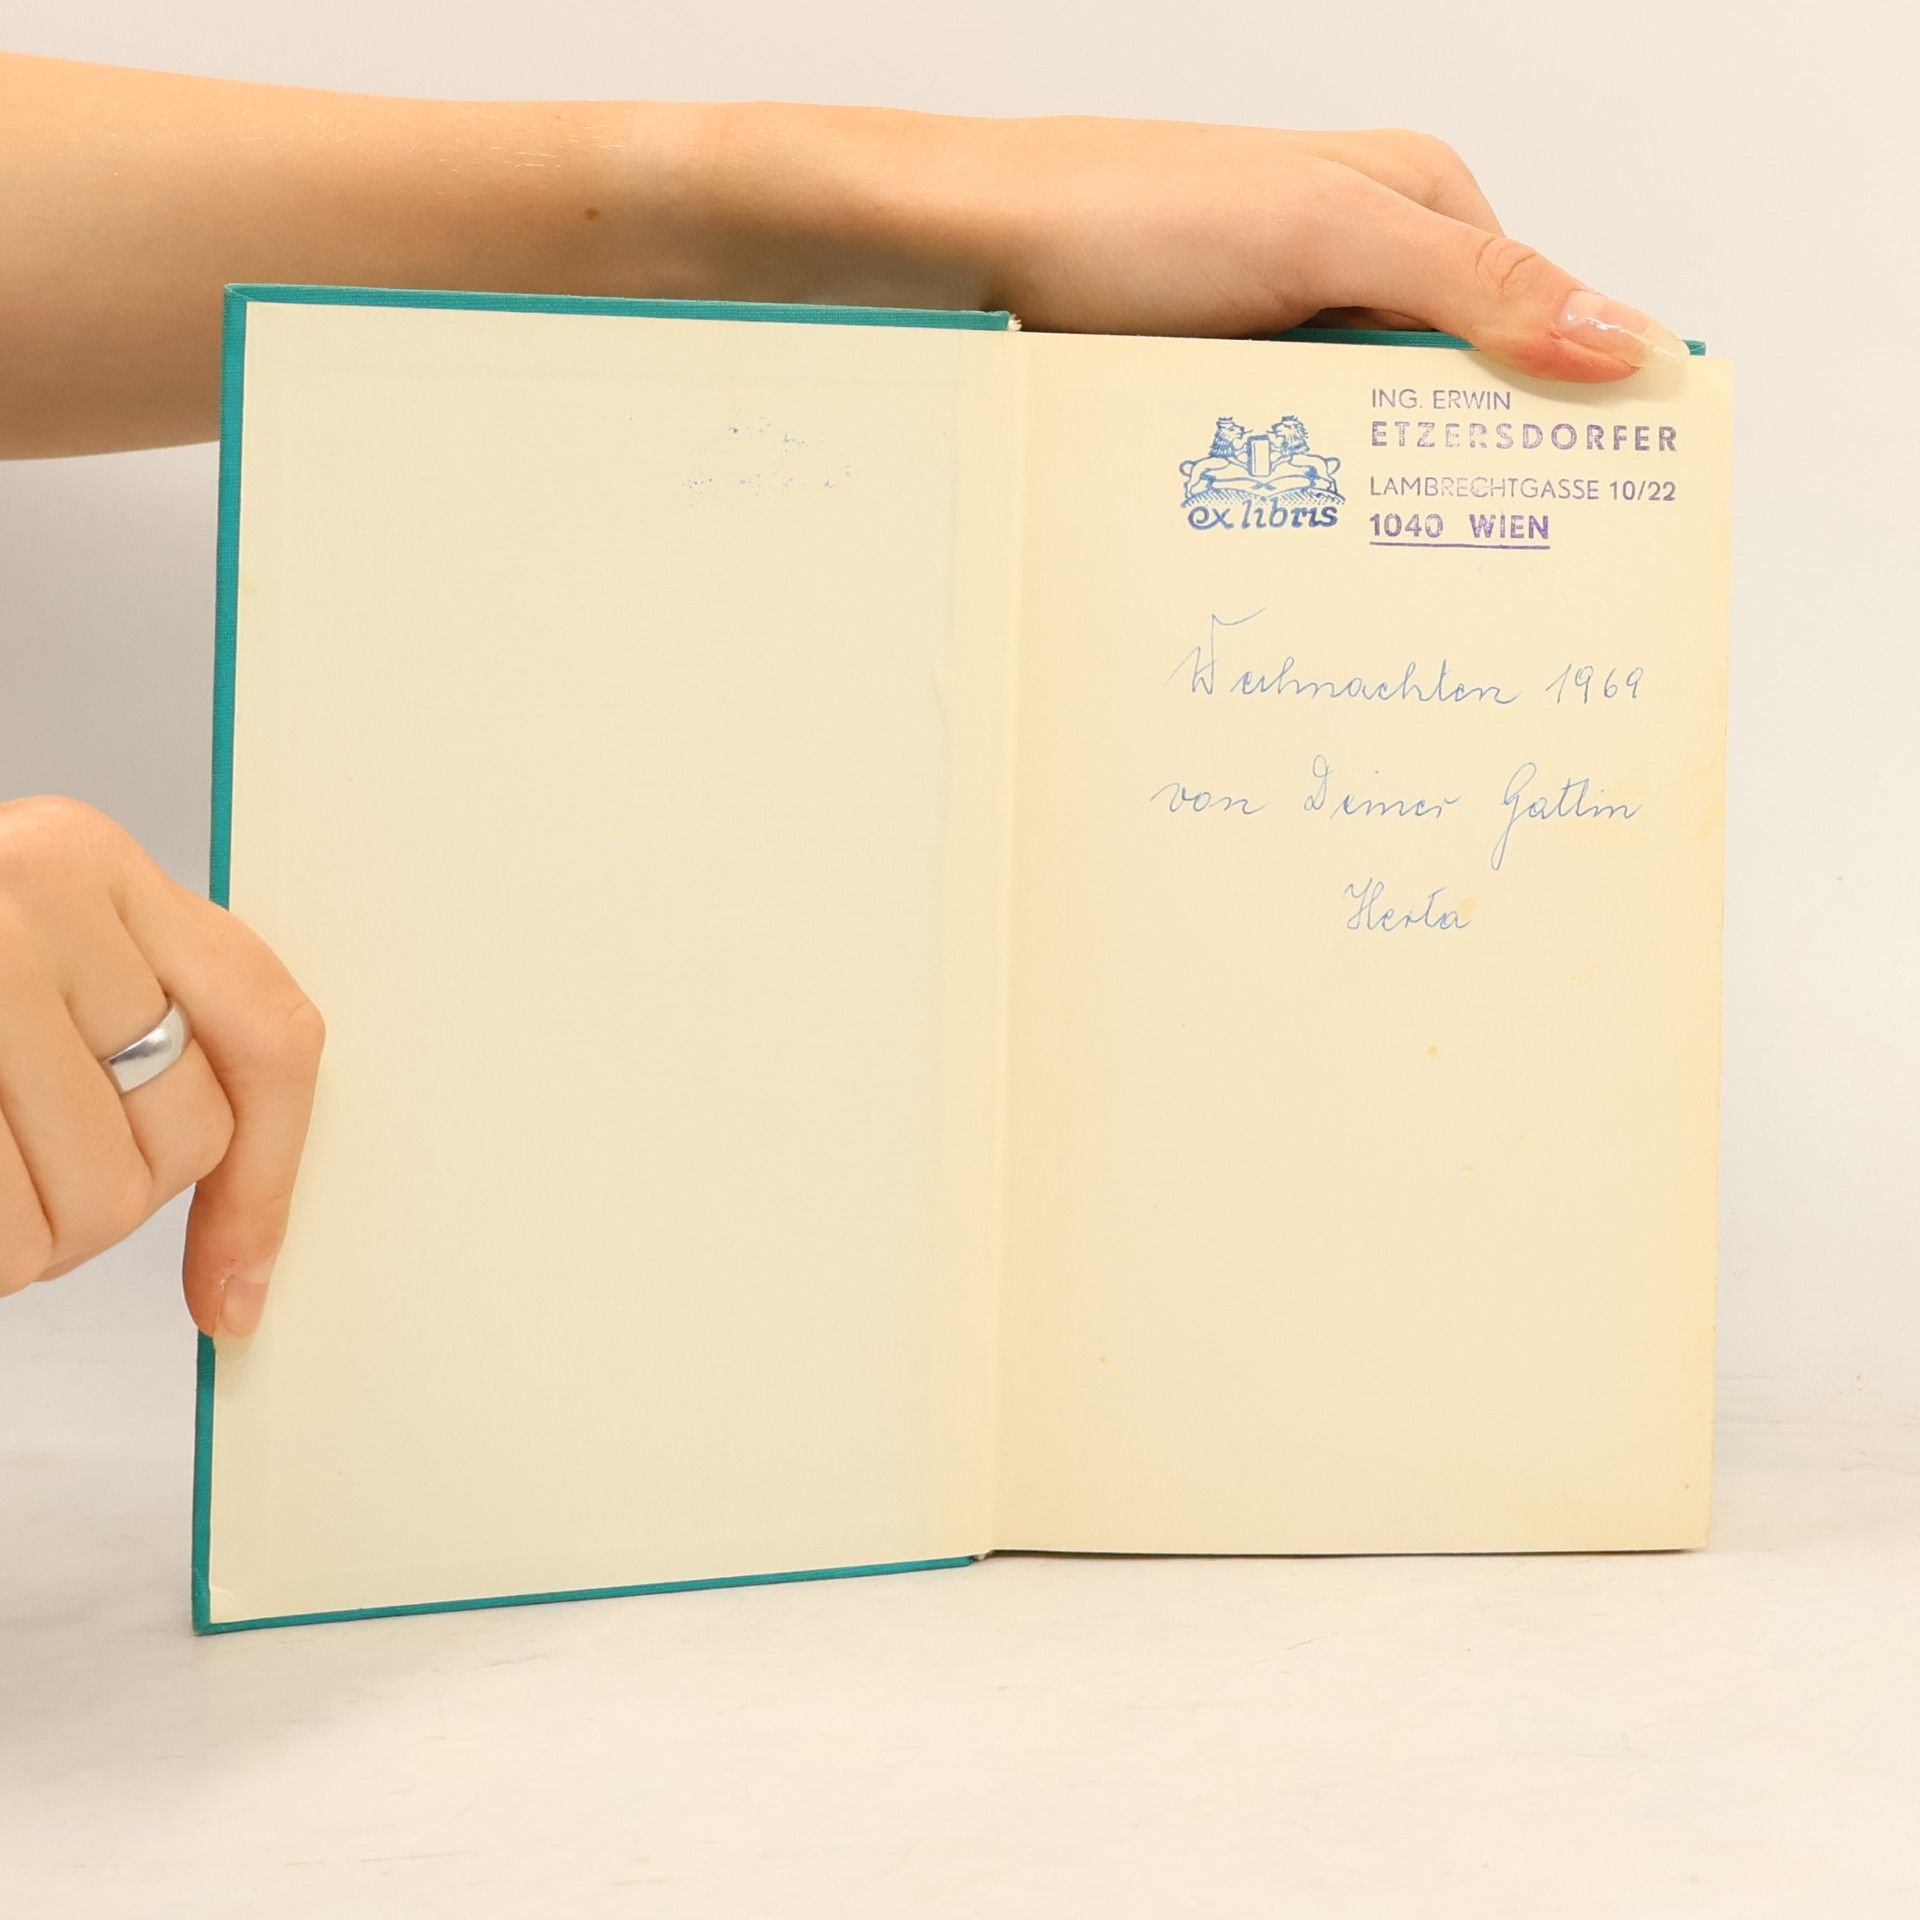 ex libris
ING. ERWIN
ETZERSDORFER
LAMBRECHTGASSE 10/22
1040 WIEN
Weihnachten 1969
von Deiner Gattin
Herta